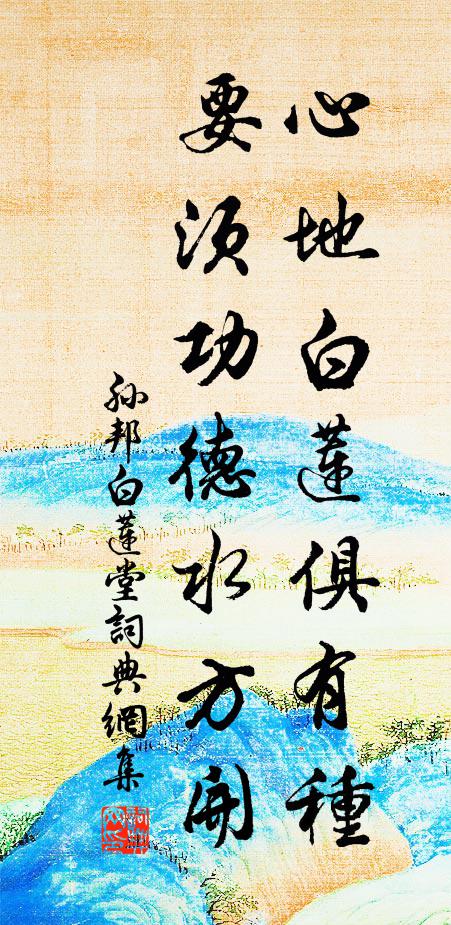 心地白蓮俱有種
要須功德水方開
孫邦白蓮堂詞典網集